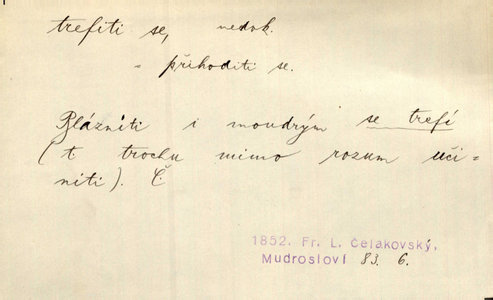 trefiti se, nedok.
= přihoditi se.
Blázniti i moudrým se trefí
(t trochu mimo rozum uči-
niti). Č
1852. Fr. L. Čelakovský,
Mudrosloví 83. 6.